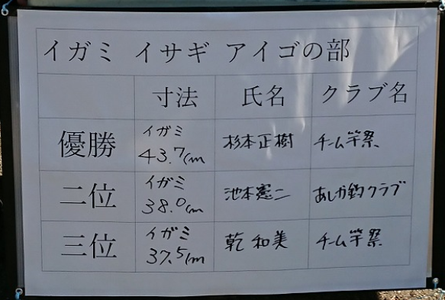 イガミ イサギ アイゴの部
寸法 氏名 クラブ名
優勝 イガミ 43.7cm 杉本正樹 チーム竿祭
二位 イガミ 38.0cm 池本憲二 あしか釣クラブ
三位 イガミ 37.5cm 乾和美 チーム竿祭